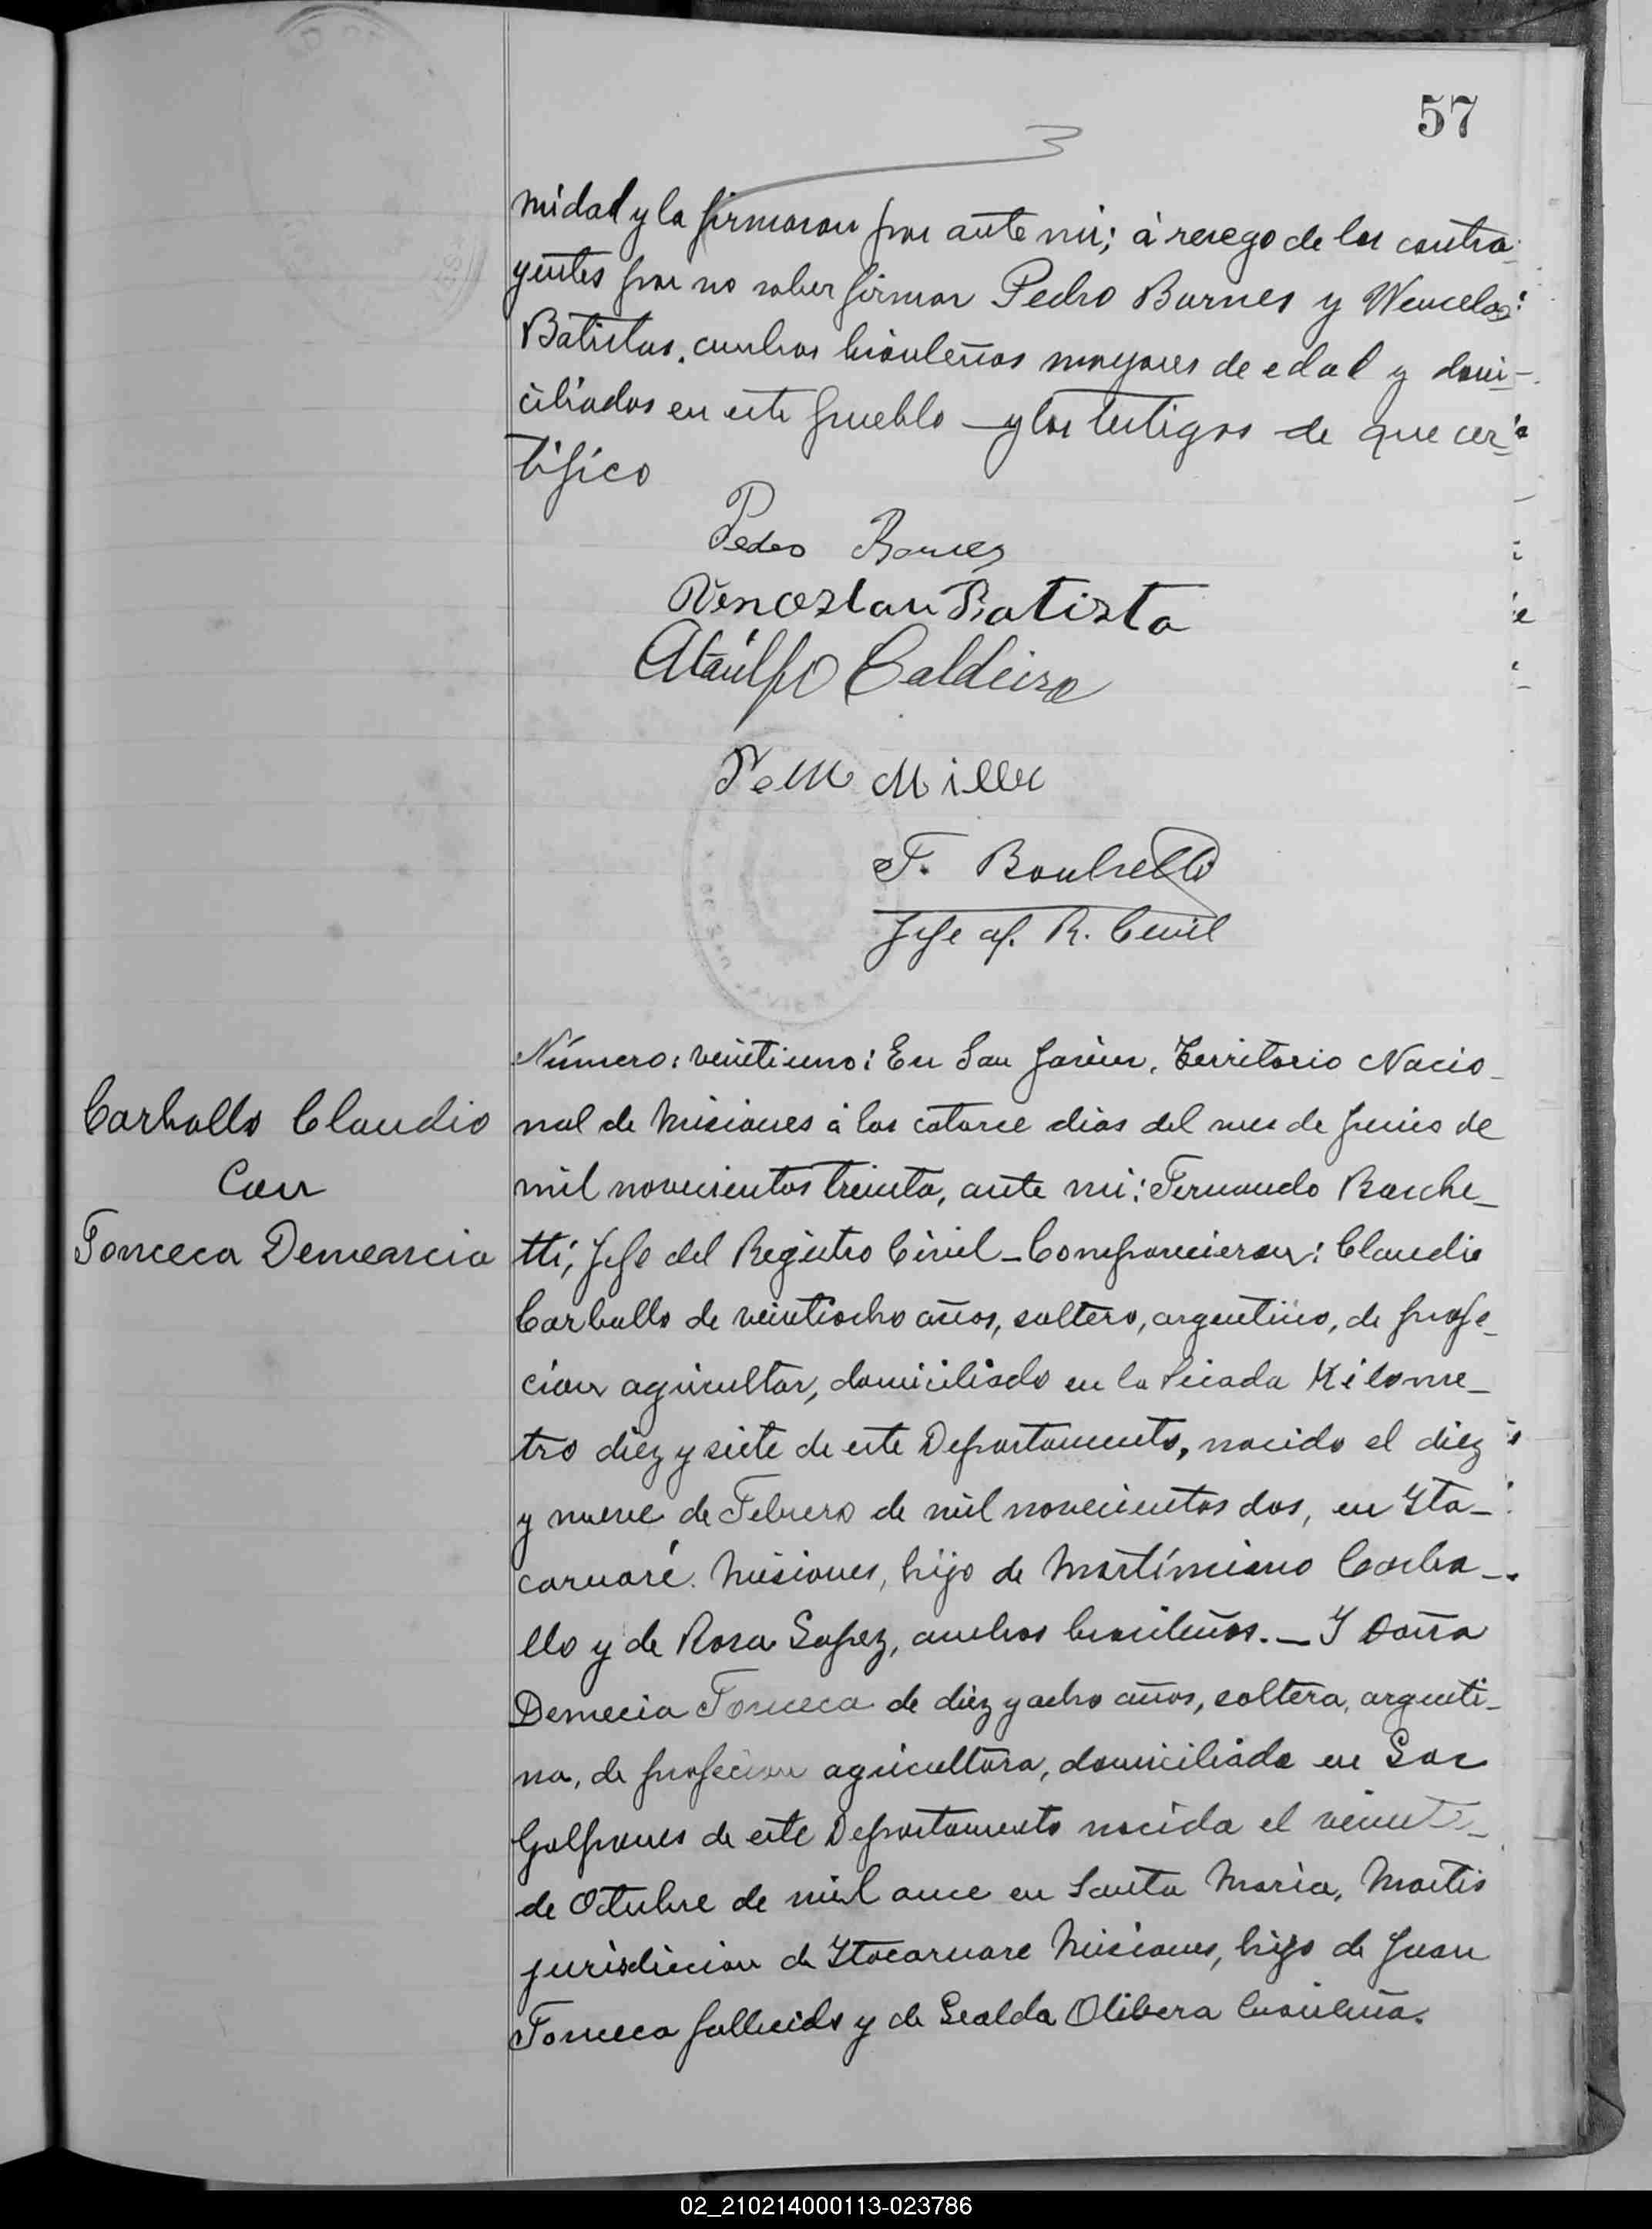 57
midad y la firmaron por ante mi; á ruego de los contra-
yentes por no saber firmar Pedro Burnes y Wencelao
Batistas, ambos brasileños mayores de edad y domi-
ciliados en este pueblo — y los testigos de que cer-
tifico
Pedro
Venceslau Batista
Ataúlfo Caldeira
Miller
F.
Jefe R. Civil
Número: veintiuno: En San Javier, Territorio Nacio-
nal de Misiones á los catorce dias del mes de Junio de
mil novecientos treinta, ante mi: Fernando
tti; Jefe del Registro Civil - Comparecieron: Claudio
Carballo de veintiocho años, soltero, argentino, de profe-
cion agricultor, domiciliado en la Picada Kilome-
tro diez y siete de este Departamento, nacido el diez
y nueve de Febrero de mil novecientos dos, en Yta-
caruaré. Misiones, hijo de Martimiano Carba-
llo y de Rosa Lopez, ambos brasileños. — Y Doña
Demecia Fonceca de diez y ocho años, soltera, argenti-
na, de profecion agricultora, domiciliada en Los
Galpones de este Departamento nacida el veinte
de Octubre de mil once en Santa Maria, Martis
jurisdicion de Ytacaruare Misiones, hija de Juan
Fonceca fallecido y de Gealda Olibera brasileña.
Carballo Claudio
Con
Fonceca Demearcia
02_210214000113-023786